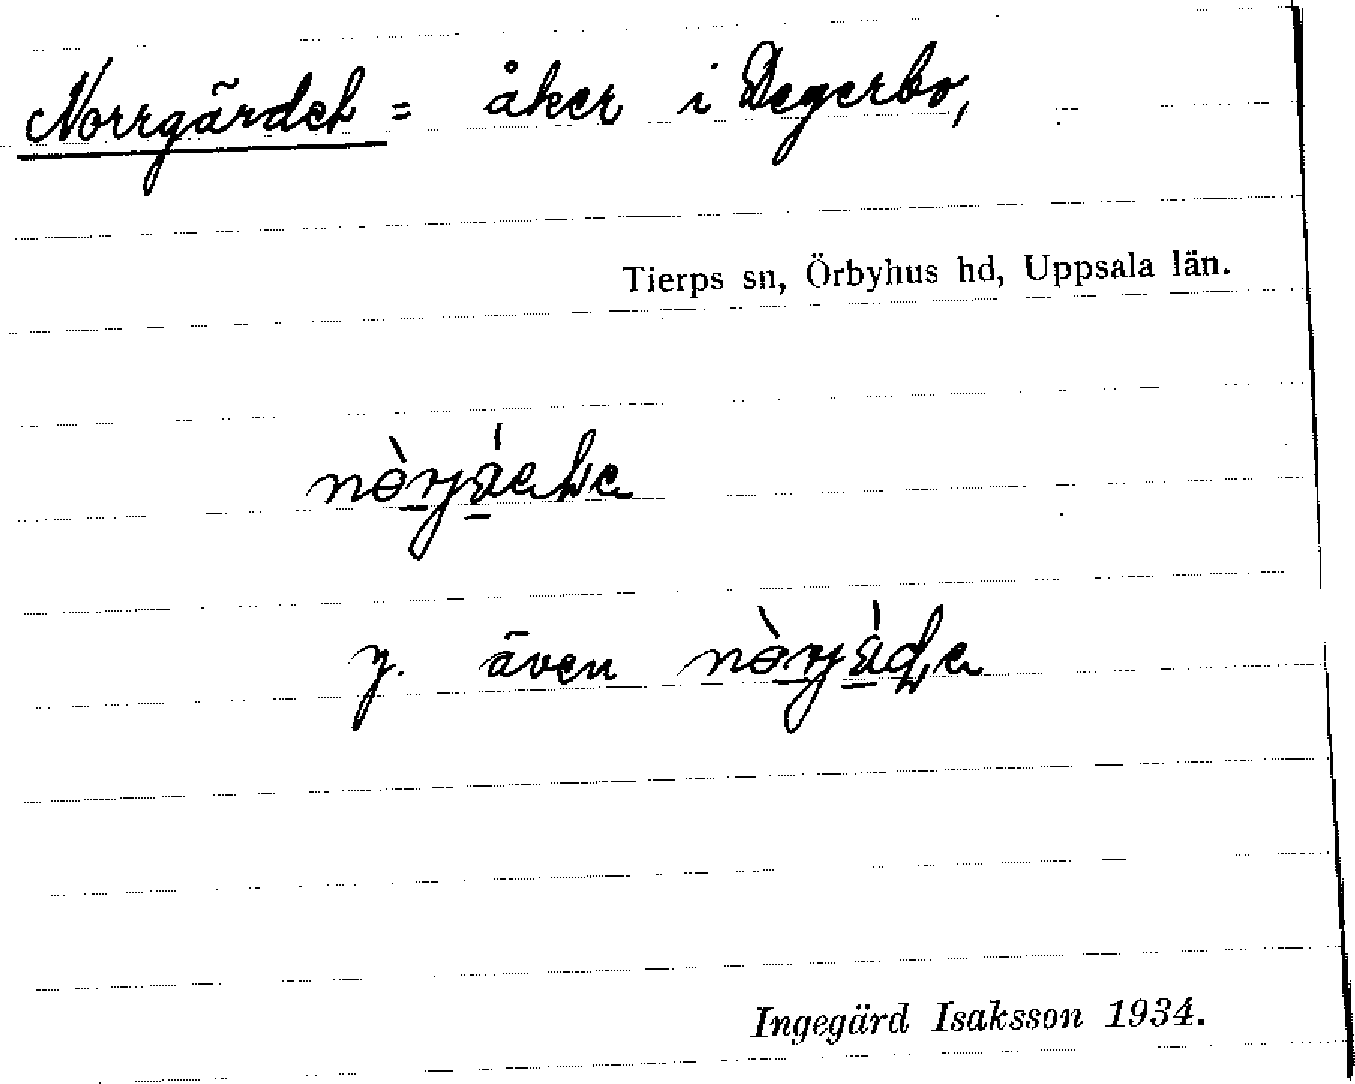 Norrgärdet = åker i Degerbo,
Tierps sn, Örbyhus hd, Uppsala län.
y. även
Ingegärd Isaksson 1934.